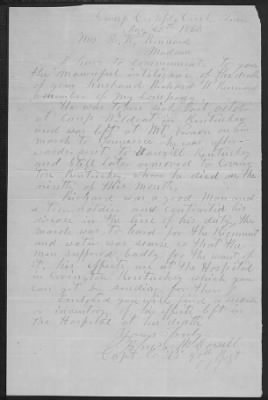 Mrs. R. W. Kinnard
Madam
I have to communicate to you
the mournful intelligence of the death
of your husband Richard W Kinnard
a member of my Company
He was taken sick last october
at Camp Wildcat in Kentucky
and was left at Mt. Vernon on our
march to he was after-
wards sent to Danvill Kentucky
and still later removed to Coving
ton Kentucky where he died on the
of this month.
Richard was a good man and
a true soldier and contracted his
disease in the line of his duty, the
march was to hard for the Regiment
and water was scarce so that the
men suffered badly for the want of
it, his effects are at the Hospital
in Covington Kentucky which you
can get by sending for them
Enclosed you will find a
or inventory of his effects left in
the Hospital at his death
Yours truly
Capt Co